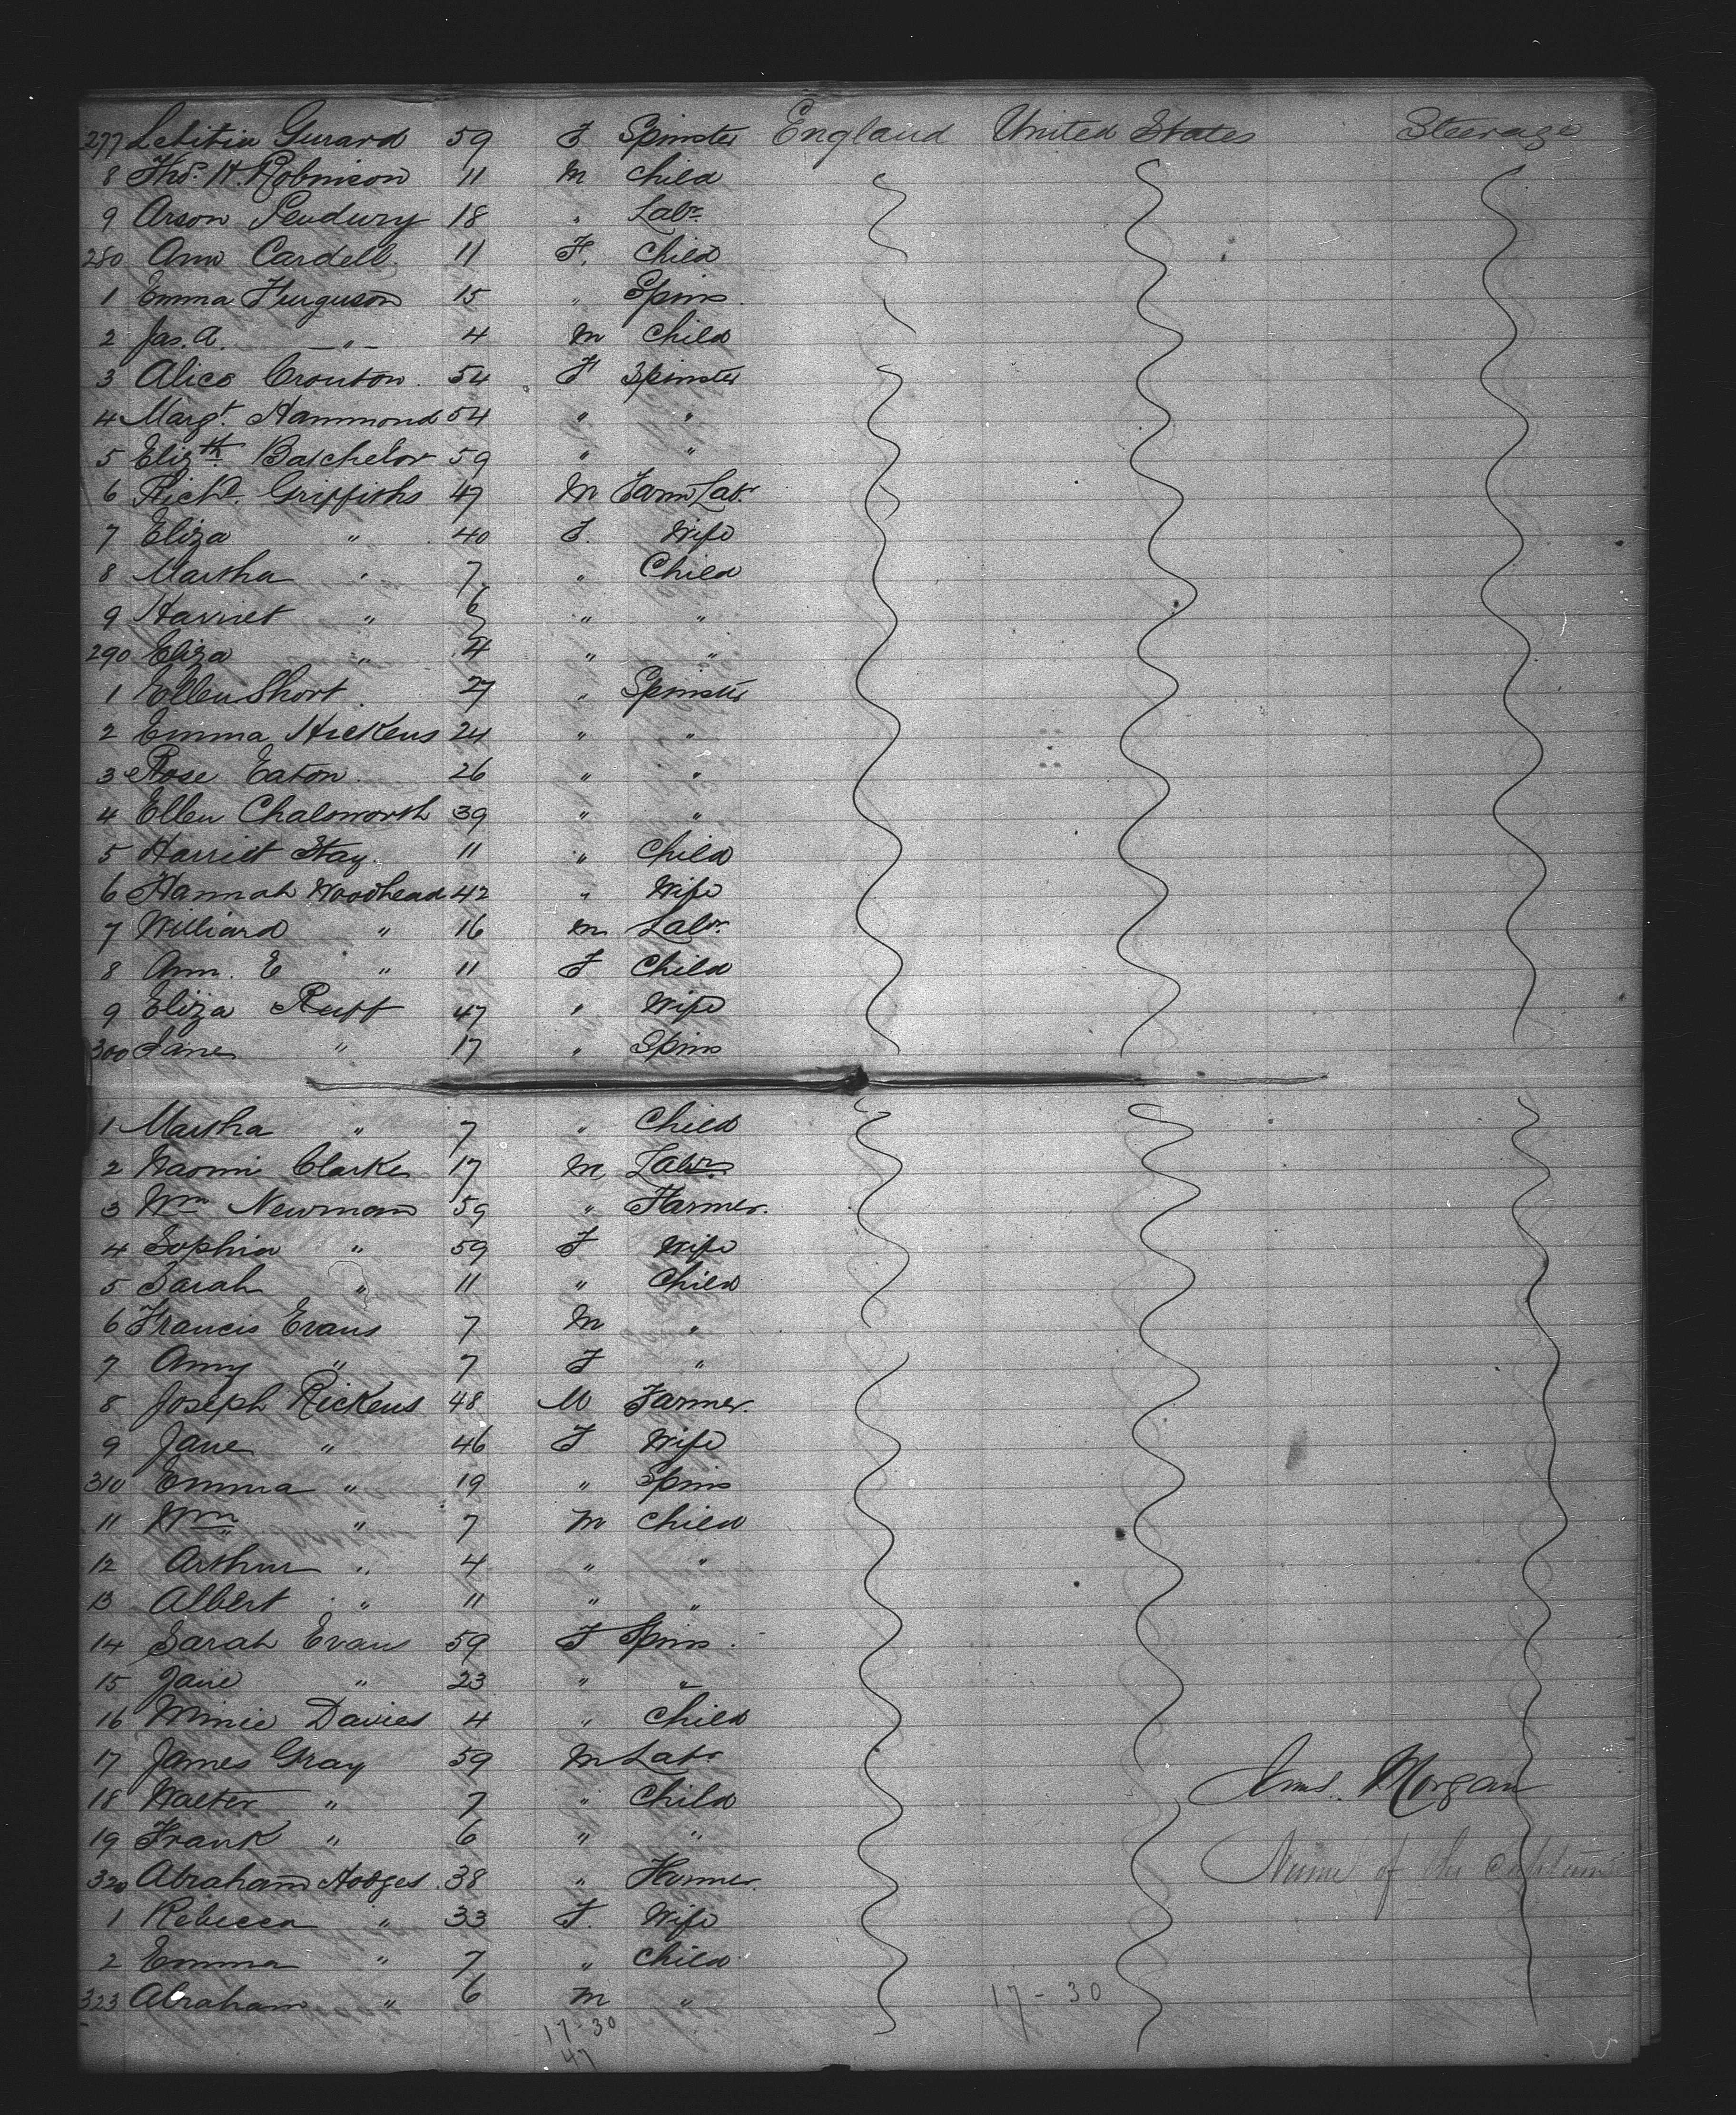 277 Letitia Gurard 59 F Spinster England United States Steerage
8 Thos. H. Robinson 11 M Child
9 Arson Pendury 18 " Labr.
280 Ann Cardell 11 F. Child
1 Emma Furguson 15 " Spins.
2 Jas. A. —"— 4 M Child
3 Alice Crouton 54 F Spinster
4 Margt. Hammond 54 " "
5 Elizth. Batchelor 59 " "
6 Richd. Griffiths 47 M Farm Labr.
7 Eliza " 40 F. Wife
8 Martha " 7 " Child
9 Harriet " 6 " "
290 Eliza " 4 " "
1 Ellen Short 27 " Spinster
2 Emma Hickens 24 " "
3 Rose Eaton 26 " "
4 Ellen Chalsworth 39 " "
5 Harriet Stay 11 " Child
6 Hannah Woodhead 42 " Wife
7 Williard " 16 M Labr.
8 Ann. E " 11 F Child
9 Eliza Ruff 47 " Wife
300 Jane " 17 " Spins
1 Martha " 7 " Child
2 Naomi Clarke 17 M Labr.
3 Wm Newman 59 " Farmer.
4 Sophia " 59 F Wife
5 Sarah " 11 " Child
6 Francis Evans 7 M "
7 Amy " 7 F "
8 Joseph Rickens 48 M Farmer.
9 Jane " 46 F Wife
310 Emma " 19 " Spins
11 Wm " 7 M Child
12 Arthur " 4 " "
13 Albert " 11 " "
14 Sarah Evans 59 F Spins.
15 Jane " 23 " "
16 Minie Davies 4 " Child
17 James Gray 59 M Labr
18 Walter " 7 " Child
Morgan
19 Frank " 6 " "
320 Abraham Hodges 38 " Farmer.
Name of the Captain
1 Rebecca " 33 F. Wife
2 Emma " 7 " Child
323 Abraham " 6 M "
17-30
17-30
47